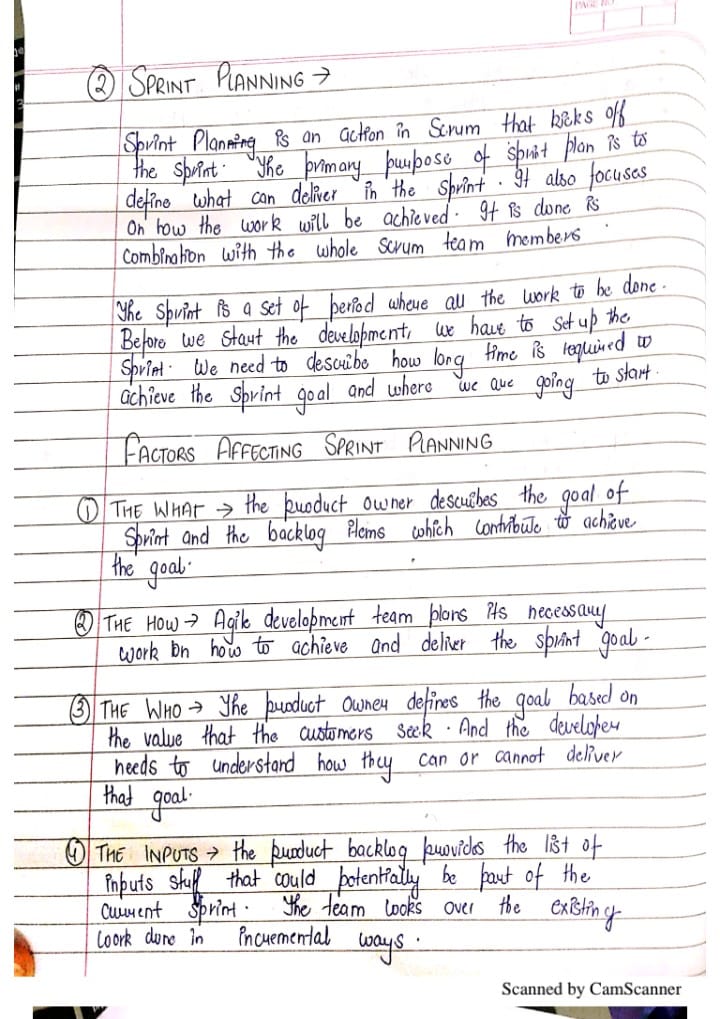 PAGE NO
② SPRINT PLANNING →
Sprint Planning is an action in Scrum that kicks off
the sprint. The primary purpose of sprint plan is to
define what can deliver in the sprint. It also focuses
on how the work will be achieved. It is done is
combination with the whole scrum team members.
The sprint is a set of period where all the work to be done.
Before we start the development, we have to set up the
sprint. We need to describe how long time is required to
achieve the sprint goal and where we are going to start.
FACTORS AFFECTING SPRINT PLANNING
① THE WHAT → the product owner describes the goal of
Sprint and the backlog items which contribute to achieve
the goal.
② THE HOW → Agile development team plans its necessary
work on how to achieve and deliver the sprint goal.
③ THE WHO → The product owner defines the goal based on
the value that the customers seek. And the developer
needs to understand how they can or cannot deliver
that goal.
④ THE INPUTS → the product backlog provides the list of
inputs stuff that could potentially be part of the
current sprint. The team looks over the existing
work done in incremental ways.
Scanned by CamScanner